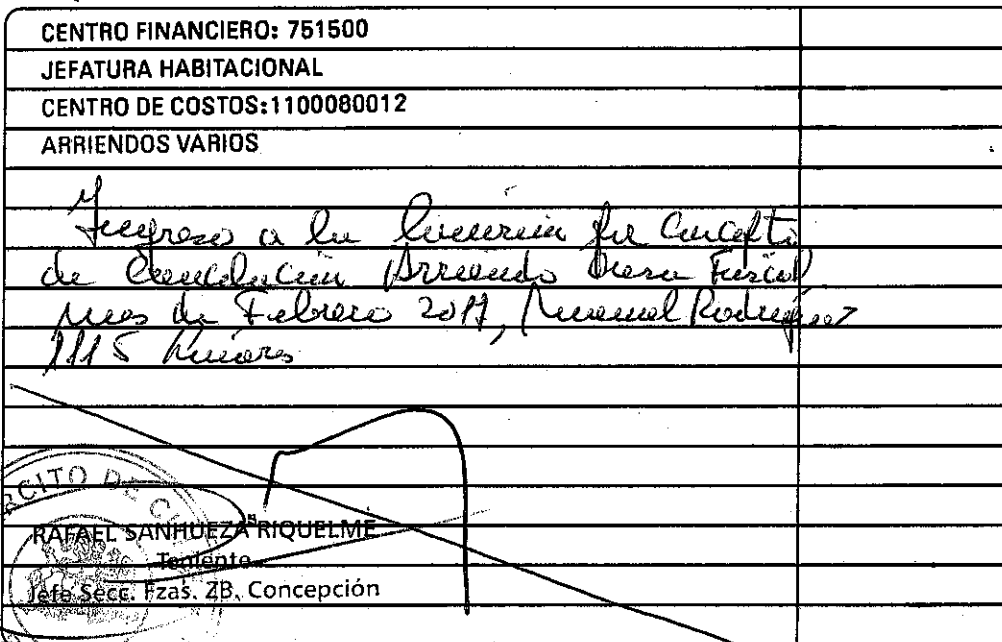 CENTRO FINANCIERO: 751500
JEFATURA HABITACIONAL
CENTRO DE COSTOS:1100080012
ARRIENDOS VARIOS
Ingreso a la Cuenta por Concepto
de Cancelación Arriendo Casa Fiscal
mes de Febrero 2017, Manuel Rodríguez
1115 Linares
EJERCITO DE
RAFAEL SANHUEZA RIQUELME
Teniente
Jefe Secc. Fzas. ZB. Concepción